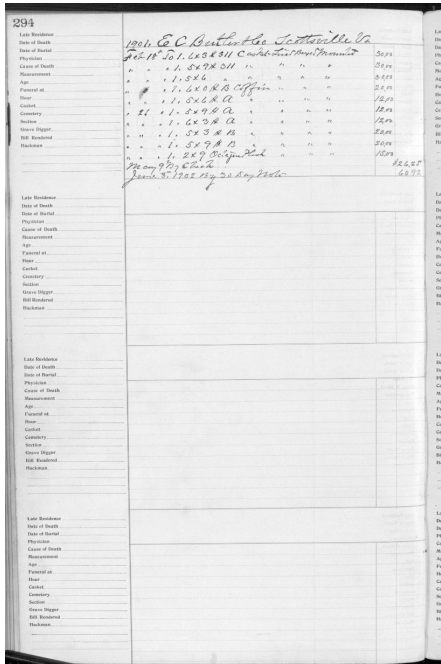 294
Late Residence
Date of Death
Date of Burial
Physician
Cause of Death
Measurement
Age
Funeral at
Hour
Casket
Cemetery
Section
Grave Digger
Bill Rendered
Hackman
1901. E C Scottsville Va
Feb 18 To 1. 6x3 # 311 Casket Mounted 30,00
" " " 1. 5x9 # 311 " " " 30,00
" " " 1. 5x6 " " " " 30,00
" " 1. 6x3 # B Coffin " " " 20,00
" " " 1. 5x6 # A " " " 12,00
" 26 " 1. 5x9 # A " " " 12,00
" " " 1. 6x3 # A " " " 12,00
" " " 1. 5x3 # B " " " 20,00
" " " 1. 5x9 # B " " " 20,00
" " " 1. 2x9 " " " 15,00
May 9 By Check
June 5, 1902 By 30 Day Note 6092
Late Residence
Date of Death
Date of Burial
Physician
Cause of Death
Measurement
Age
Funeral at
Hour
Casket
Cemetery
Section
Grave Digger
Bill Rendered
Hackman
Late Residence
Date of Death
Date of Burial
Physician
Cause of Death
Measurement
Age
Funeral at
Hour
Casket
Cemetery
Section
Grave Digger
Bill Rendered
Hackman
Late Residence
Date of Death
Date of Burial
Physician
Cause of Death
Measurement
Age
Funeral at
Hour
Casket
Cemetery
Section
Grave Digger
Bill Rendered
Hackman